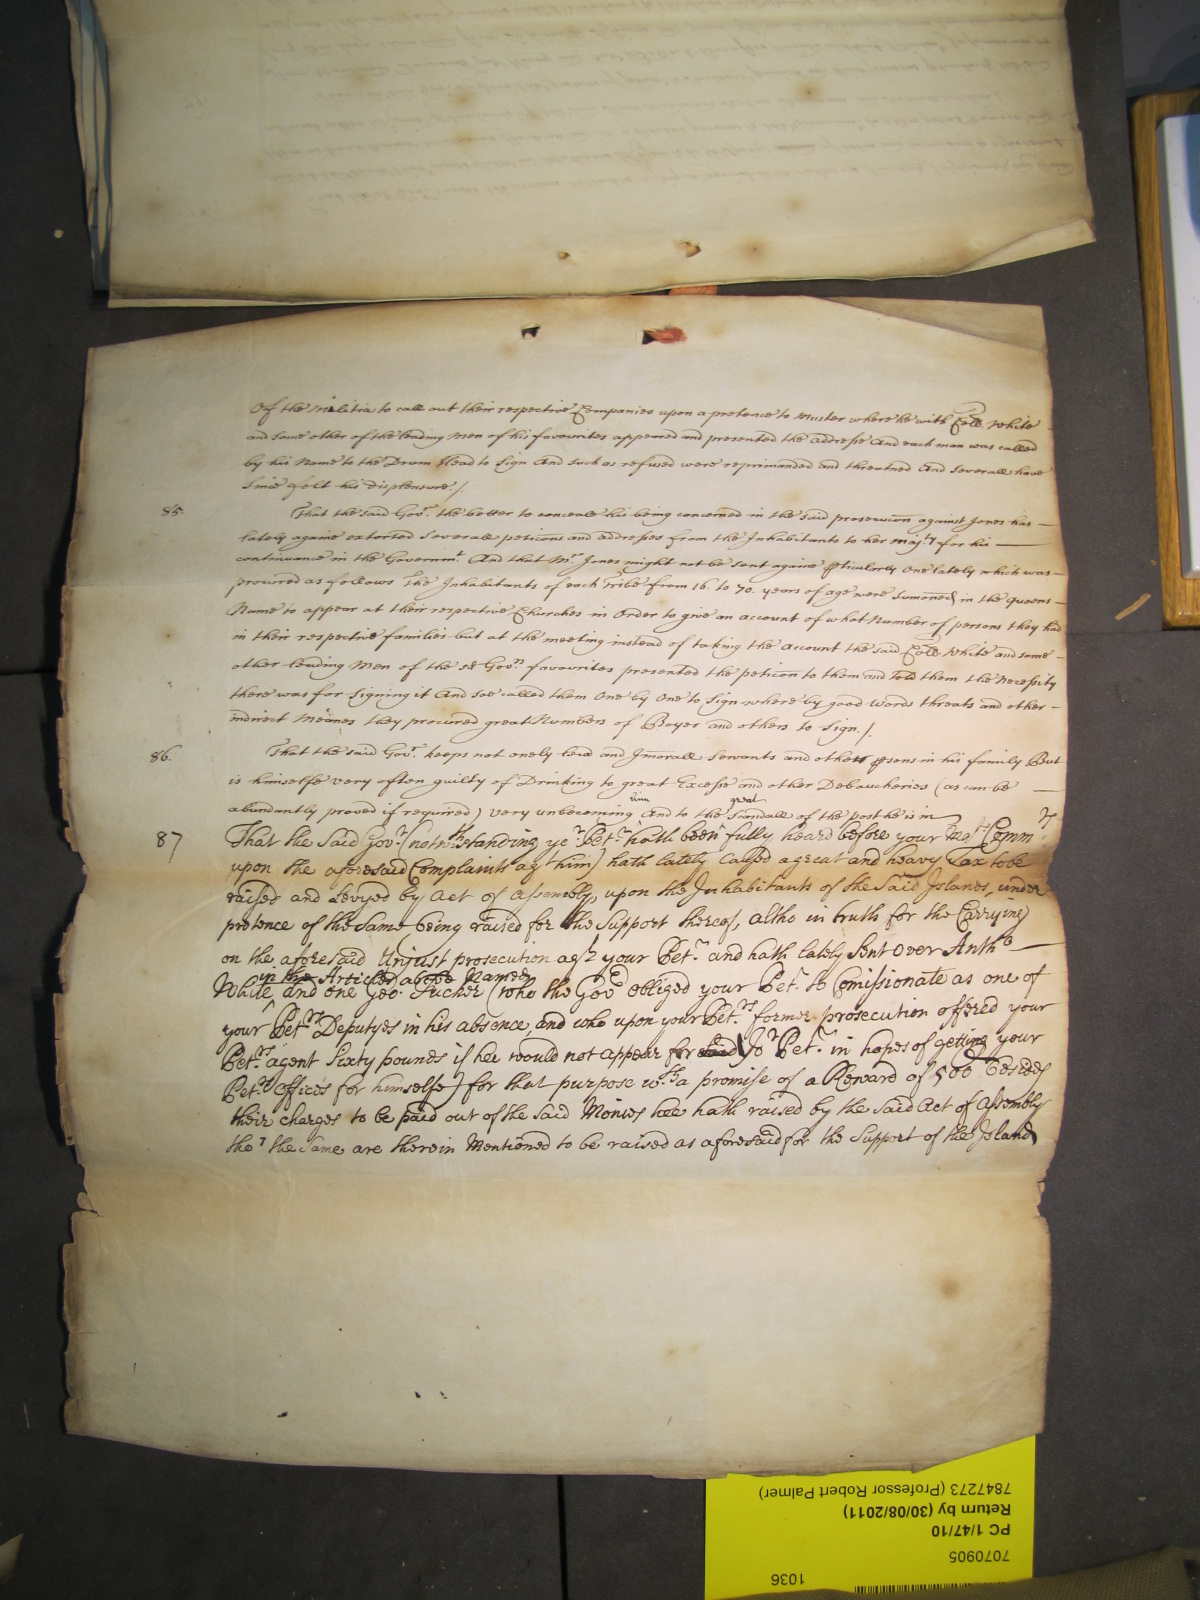 Of the Militia to call out their respective Companies upon a pretence to Muster where he with Coll. White
and some other of the leading Men of his favourites appeared and presented the Addresse And each man was called
by his Name to the Drum Head to Sign And such as refused were reprimanded and threatned And Severall have
Since felt his displeasure./.
85 That the said Gov.r the better to conceale his being concerned in the said prosecucon against Jones has
lately againe extorted Severall peticons and addresses from the Inhabitants to her Maj.ty for his
continuance in the Governm.t And that Mr. Jones might not be sent againe pticularly One lately which was
procured as follows The Inhabitants of each Tribe from 16 to 70 years of age were Sumoned in the Queens
Name to appear at their respective Churches in Order to give an account of what Number of persons they had
in their respective families but at the meeting instead of taking the Account the said Coll. White and some
other leading Men of the sd Gov.rs favourites presented the peticon to them and told them the Necessity
there was for Signing it And soe called them One by One to Sign where by good words threats and other
indirect Meanes they procured great Numbers of Boyes and others to Sign./.
86. That the said Gov.r keeps not onely lewd and Imorall Servants and others psons in his family But
is himselfe very often guilty of Drinking to great Excesse and other Debaucheries (as can be
abundantly proved if required) very unbecoming him And to the great Scandale of the post he is in
87 That the Said Gov.r (notw.thstanding ye.r Pet.r hath been fully heard before your Ma.ts Comm.rs
upon the aforesaid Complaints ag.t him) hath lately caused a great and heavy Tax to be
raised and Levyed by Act of Assembly, upon the Inhabitants of the Said Islands, under
pretence of the Same being raised for the Support thereof, altho in truth for the Carrying
on the aforesaid Unjust prosecution ag.t your Pet.r and hath lately Sent over Antho
in the Articles above Named
White ^ and one Geo: Tucker (who the Gov.r obliged your Pet.r to Comissionate as one of
your Pet.rs Deputyes in his absence, and who upon your Pet.rs former prosecution offered your
Pet.rs agent Sixty pounds if hee would not appear for said yo.r Pet.r in hopes of getting your
Pet.rs Offices for himselfe) for that purpose w.th a promise of a Reward of 500 besides
their charges to be paid out of the said Monies hee hath raised by the said Act of Assembly
tho' the Same are therein Mentioned to be raised as aforesaid for the Support of the Island
1036
7070905
PC 1/47/10
Return by (30/08/2011)
7847273 (Professor Robert Palmer)